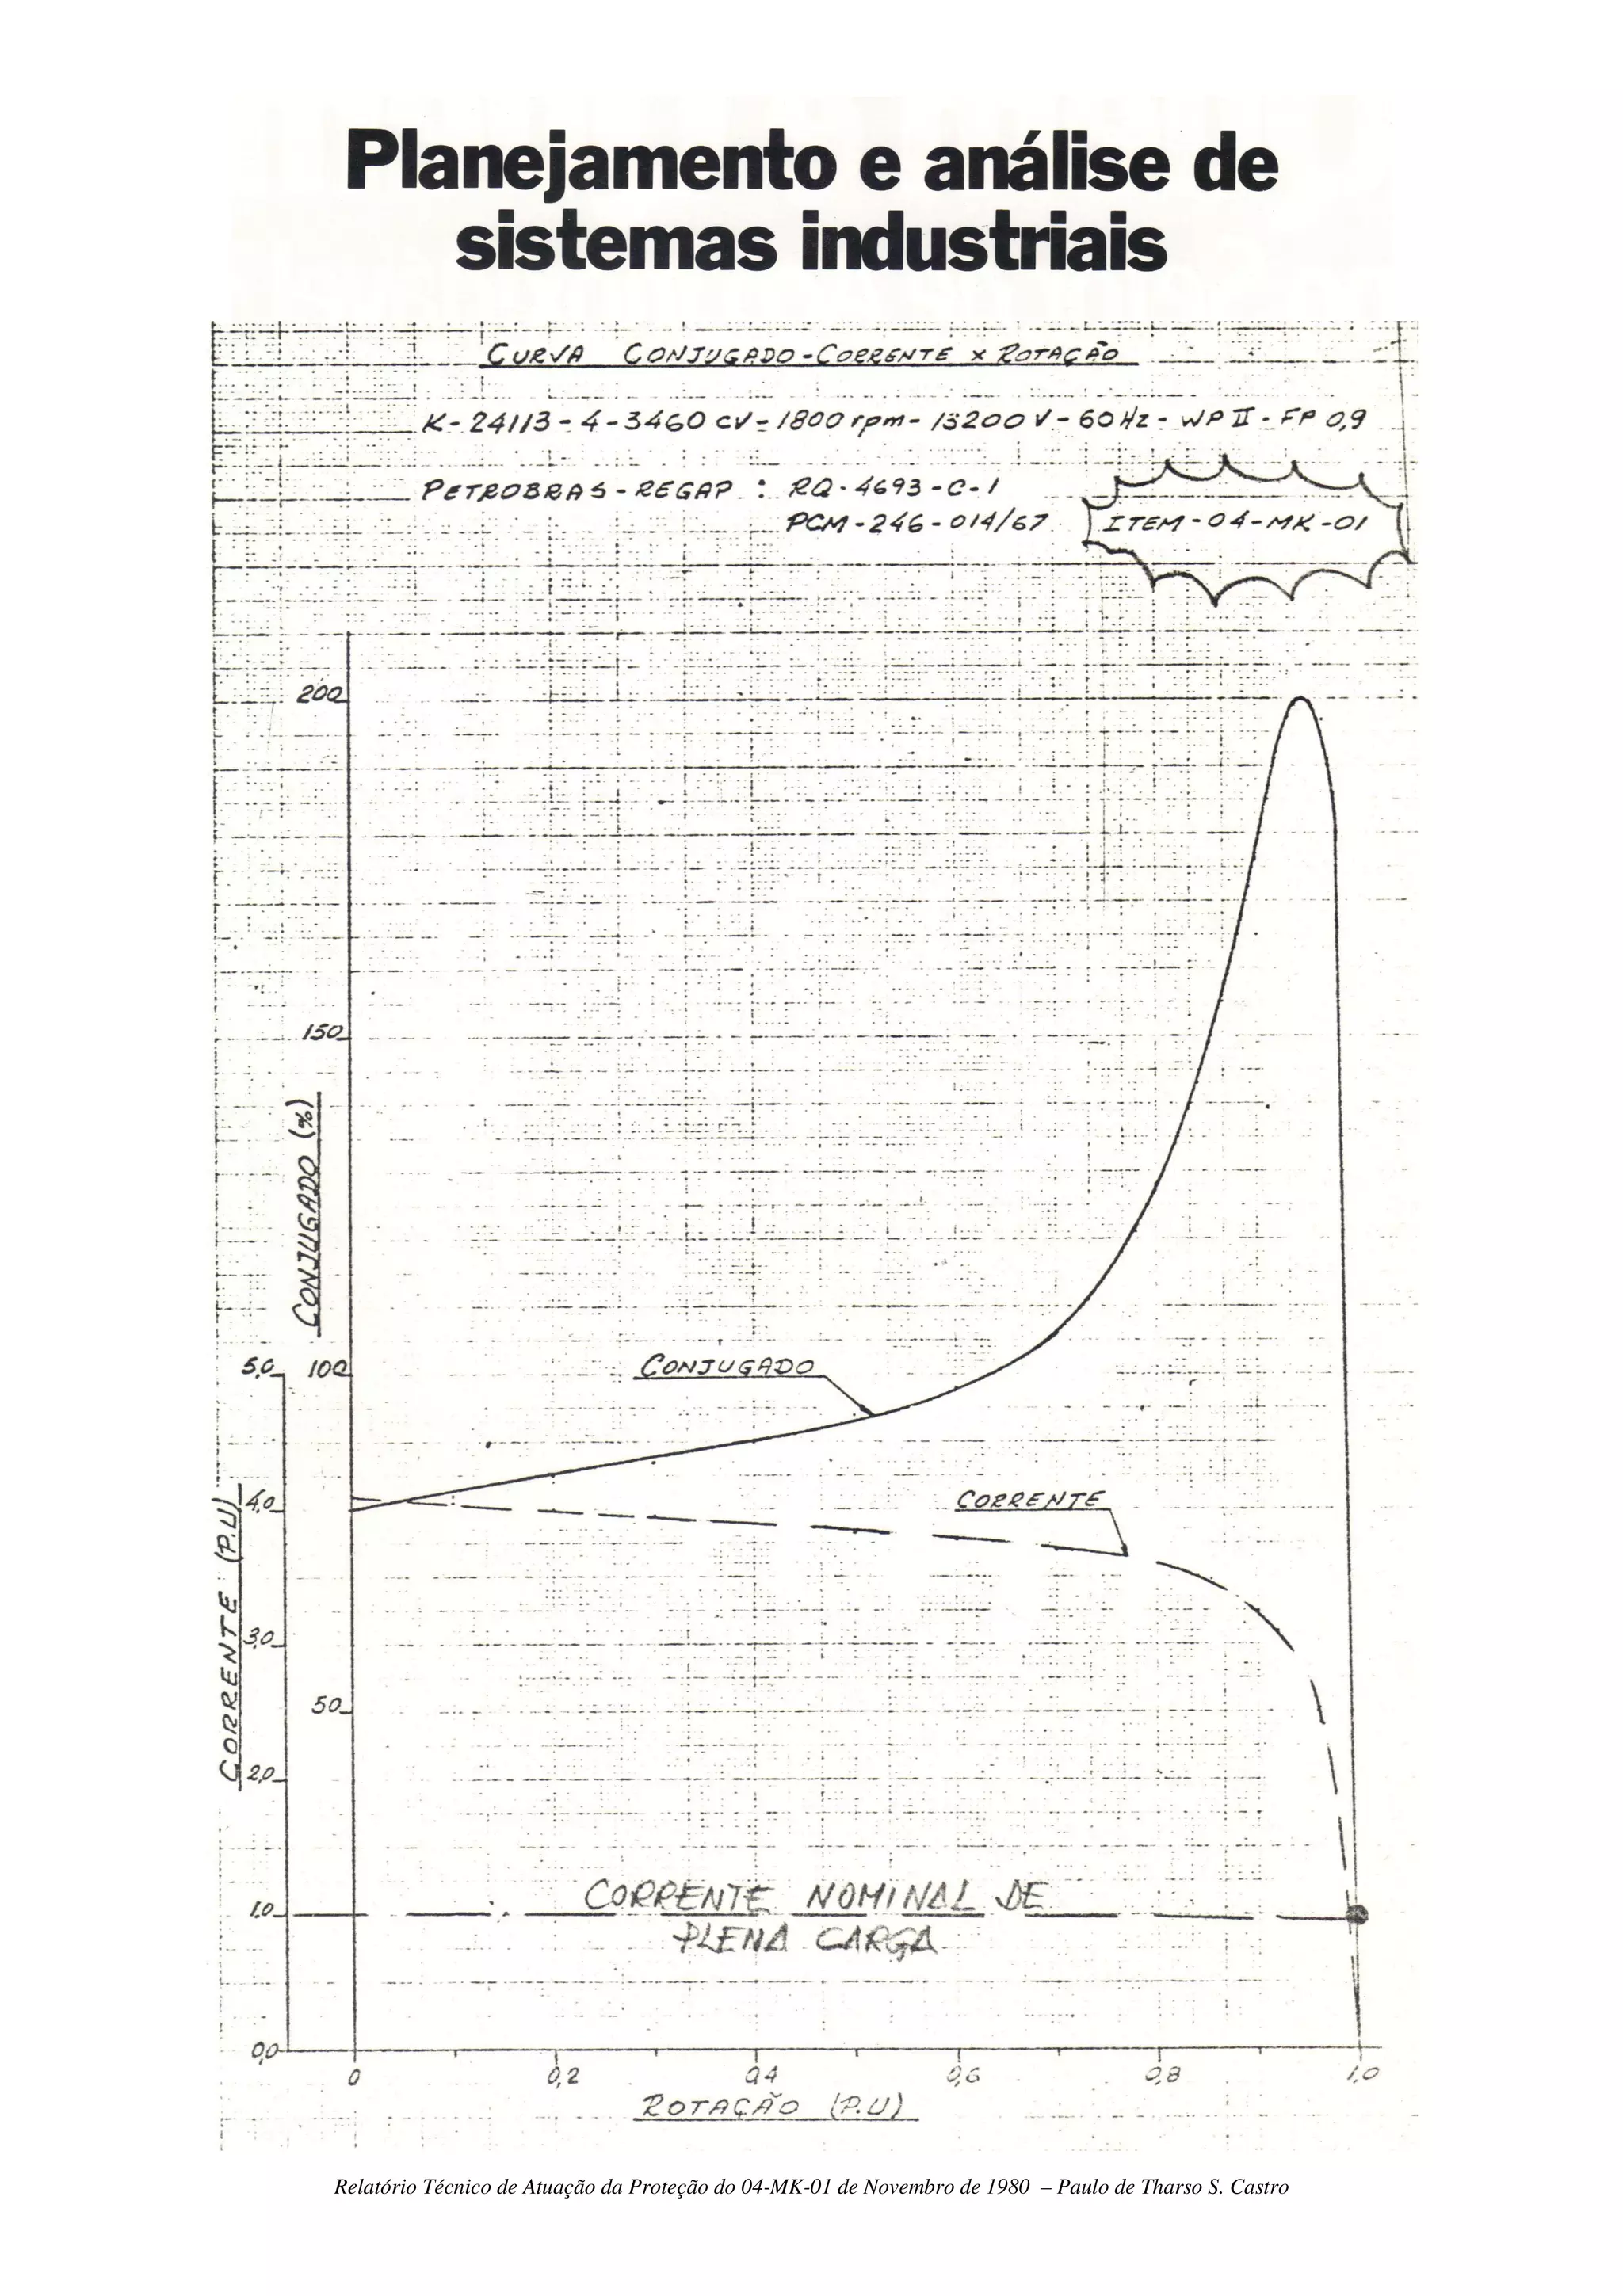 Planejamento e análise de
sistemas industriais
CURVA CONJUGADO-CORRENTE x ROTAÇÃO
K-24113-4-3460 cv-1800 rpm-13200 V-60 Hz-WP II-FP 0,9
PETROBRAS-REGAP : RQ-4693-C-1
PCM-246-014/67 ITEM-04-MK-01
200
150
CONJUGADO (%)
5,0 100
CONJUGADO
4,0
CORRENTE
CORRENTE (P.U)
3,0
50
2,0
CORRENTE NOMINAL DE
1,0
PLENA CARGA
0,0
0 0,2 0,4 0,6 0,8 1,0
ROTAÇÃO (P.U)
Relatório Técnico de Atuação da Proteção do 04-MK-01 de Novembro de 1980 – Paulo de Tharso S. Castro